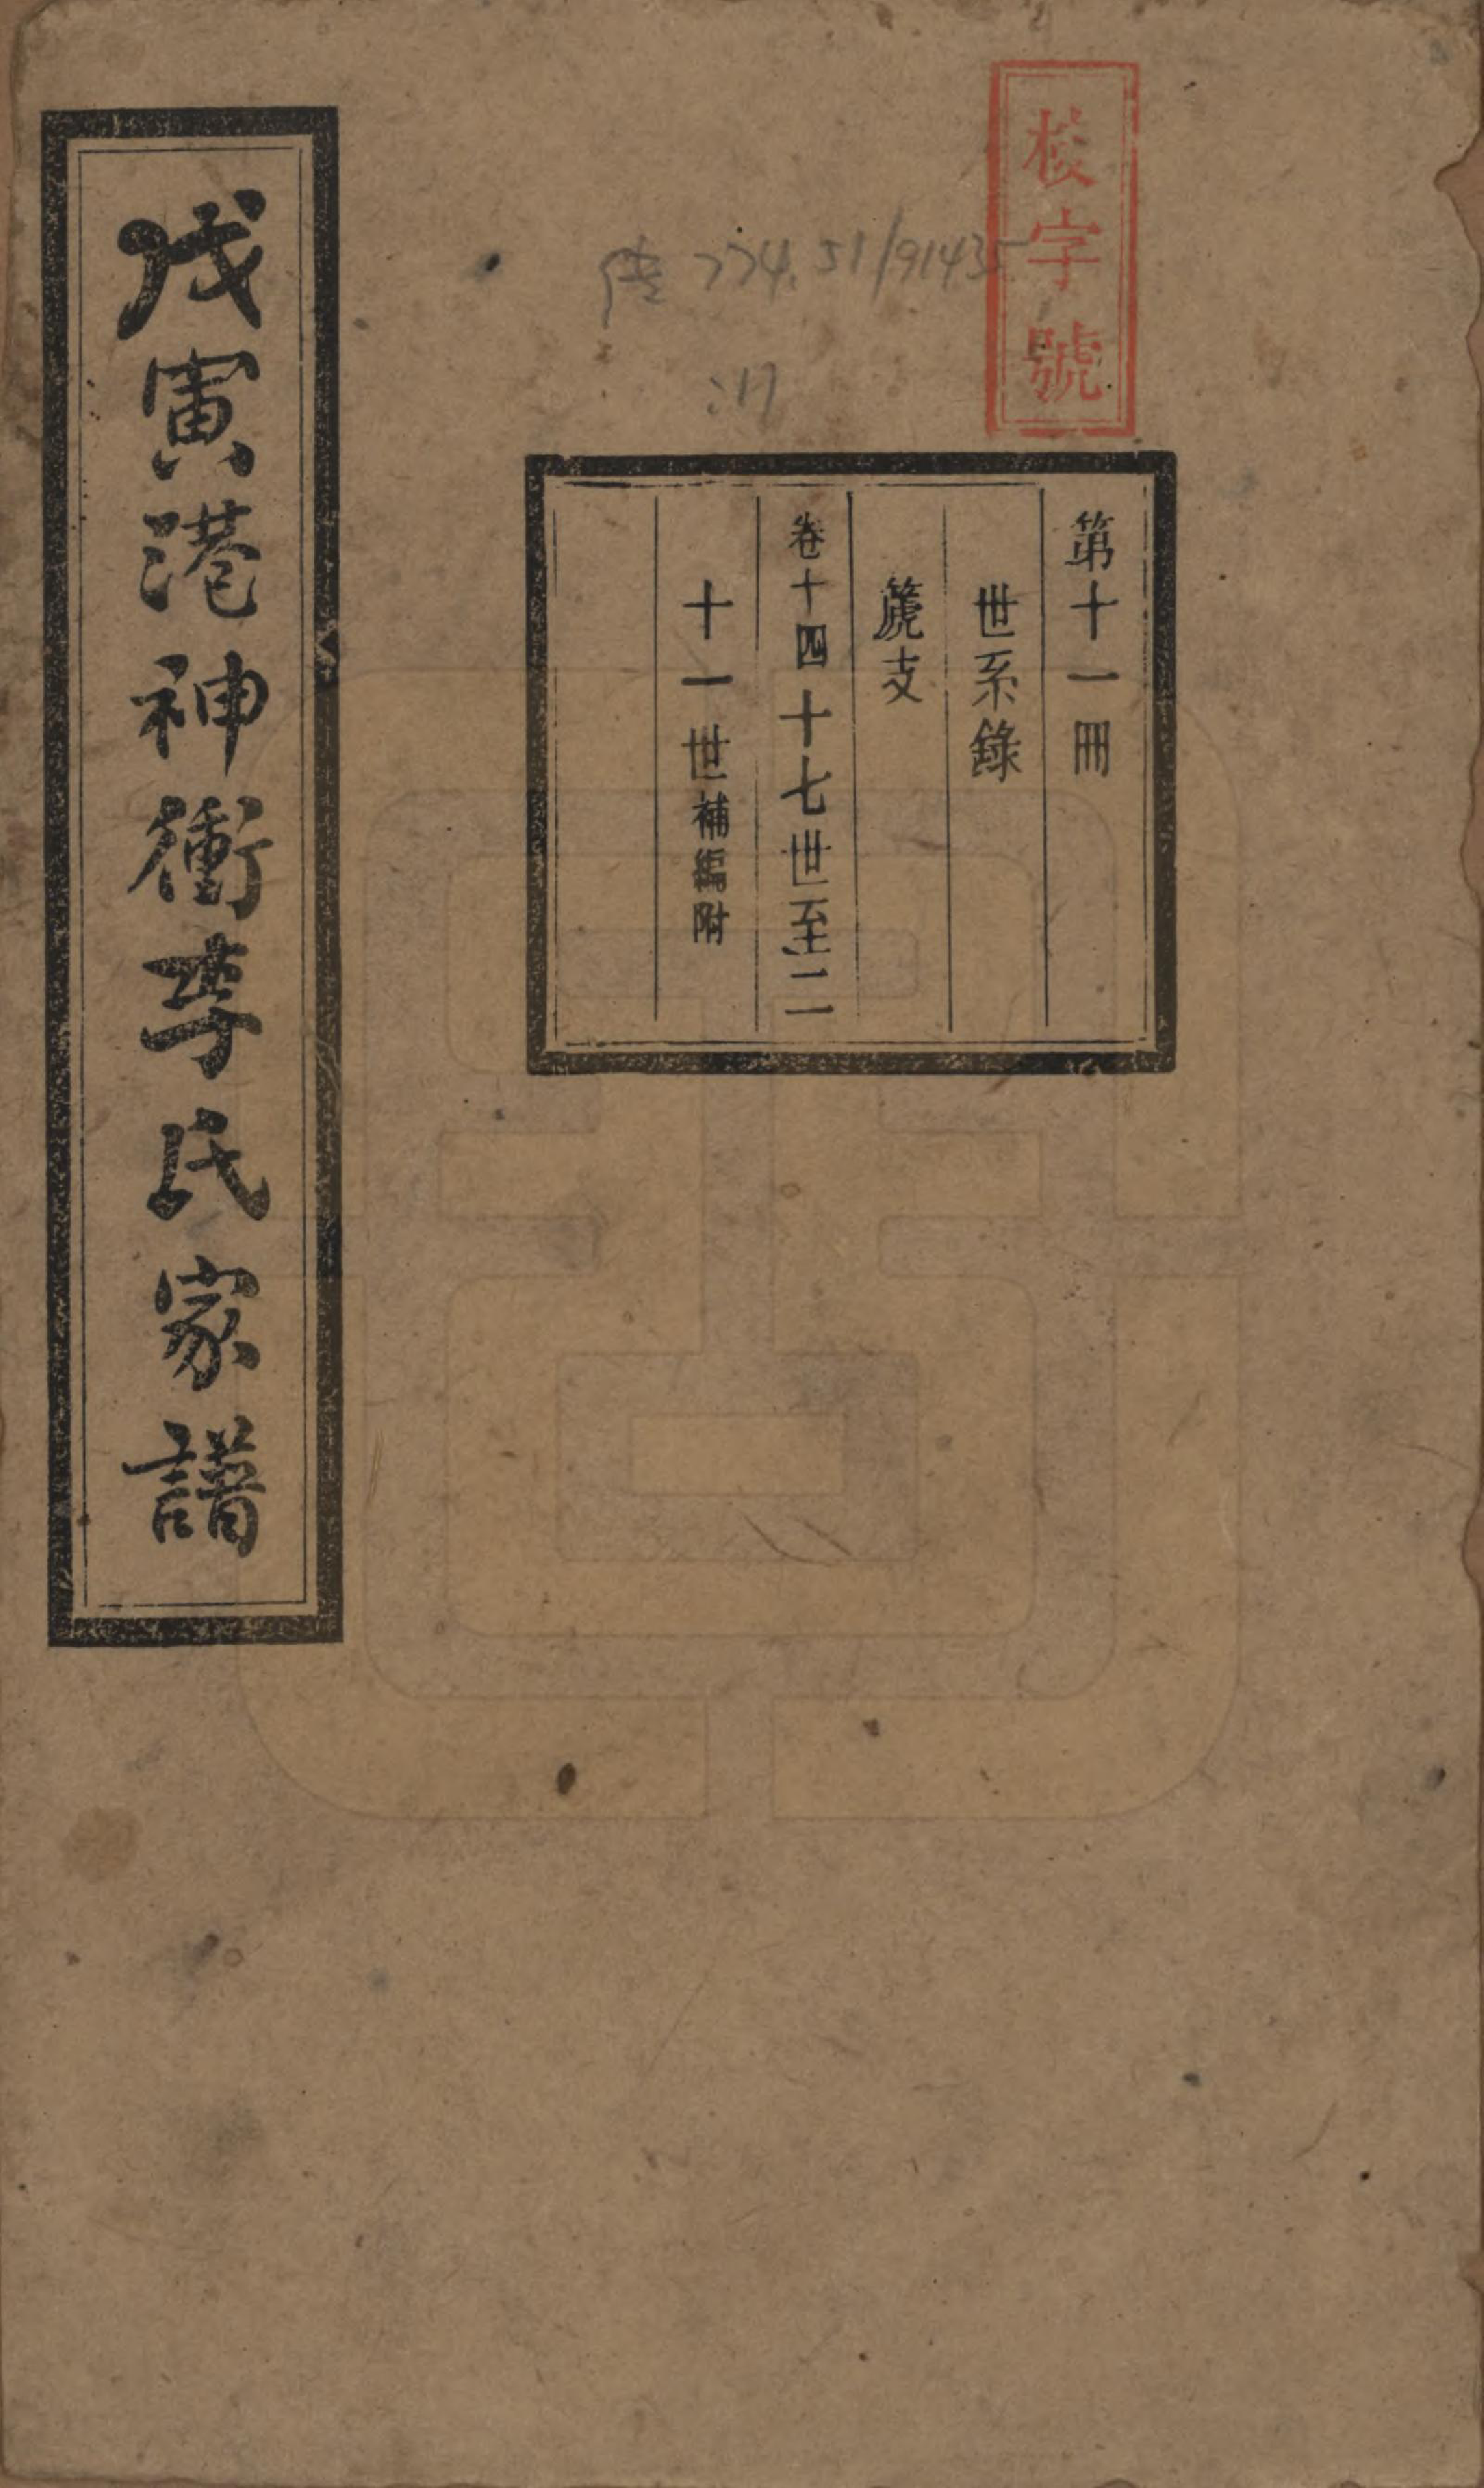 校字號
774.51/91435
:11
第十一冊
世系錄
篪支
卷十四十七世至二
十一世補編附
戊寅港神衝李氏家譜